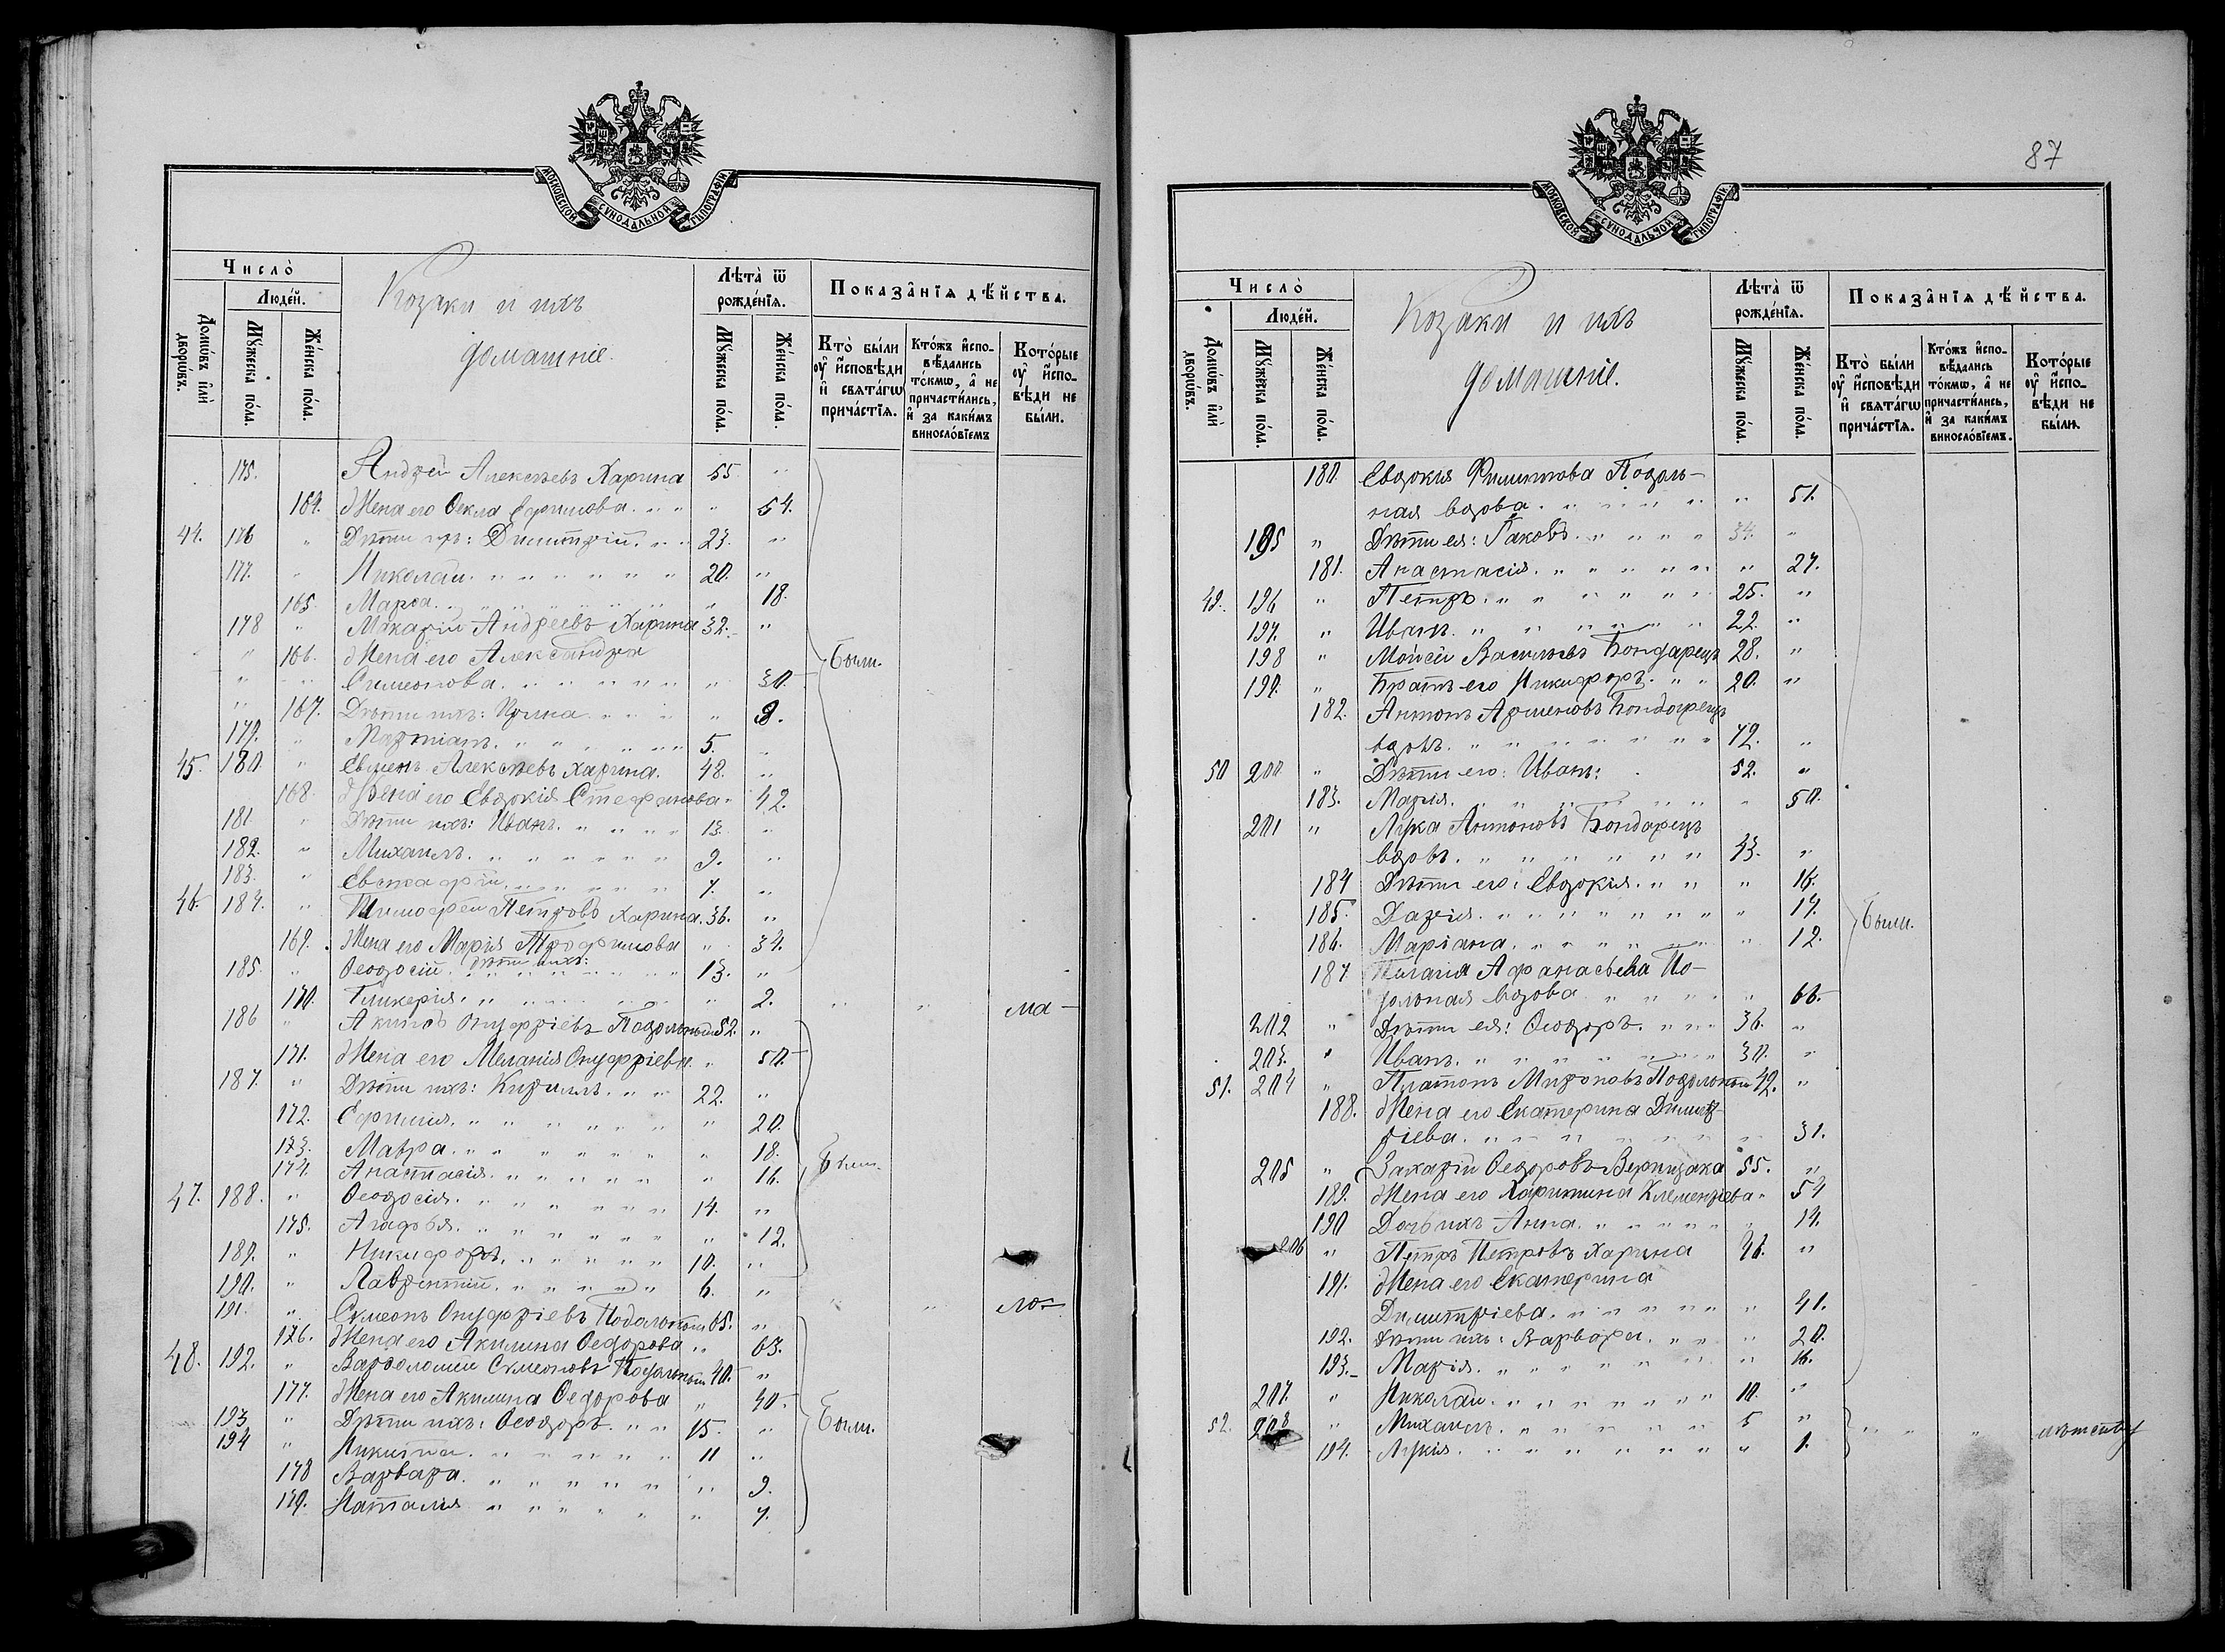 МОСКОВСКОЙ СѴНОДАЛЬНОЙ ТИПОГРАФІИ
Число̀
Домѡ́въ и҆лѝ дворѡ́въ.
Людéй.
Мꙋ́жеска по́ла.
Же́нска по́ла.
Козаки и ихъ
домашніе.
Лѣта̀ ѿ рожде́нїѧ.
Мꙋ́жеска по́ла.
Же́нска по́ла.
Показа̑нїѧ дѣ́йства.
Кто̀ бы́ли ᲂу҆ и҆сповѣди и҆ свѧта́гѡ прича́стїѧ.
Кто́жъ и҆спо-вѣдались то́кмѡ, а҆ не причасти́лись, и҆ за каки́мъ винослóвїемъ
Кото́рые ᲂу҆ и҆спо-вѣди не бы́ли.
175. Андрей Алексѣевъ Харина 55 "
164. Жена его Ѳекла Ефимова. " " " 54.
44. 176 " Дѣти ихъ: Димитрій. " " 23. "
177. " Николай. " " " " " " 20. "
165. Марѳа. " " " " " " " 18.
178 " Макарій Андреевъ Харина 32. "
" 166. Жена его Александра
" " Симеонова. " " " " " " 30. Были.
" 167. Дѣти ихъ: Ирина. " " " " 9.
179. " Мартіанъ. " " " " " " 5. "
45. 180. " Евменъ Алексѣевъ Харина. 48. "
168. Жена его Евдокія Стефанова. " 42.
181. " Дѣти ихъ: Иванъ. " " " " 13. "
182. " Михаилъ. " " " " " " 9. "
183. " Евстафій. " " " " " 7. "
46. 184. " Тимофей Петровъ Харина. 36. "
169. Жена его Марія Трофимова " 34.
185. " Ѳеодосій. дѣти ихъ: " " " 13. "
170. Гликерія. " " " " " " 2. " " ма-
186 " Акимъ Онуфріевъ Подольный 52. "
171. Жена его Меланія Онуфріева " 50.
187. " Дѣти ихъ: Кириллъ. " " 22. "
172. Ефимія. " " " " " " " 20.
173. Мавра. " " " " " " " 18.
174. Анастасія. " " " " " " 16. Были.
47. 188. " Ѳеодосій. " " " " " " 14. "
175. Агафія. " " " " " " " 12.
189. " Никифоръ. " " " " " 10. "
190. " Лаврентій. " " " " " 6. "
191. " Симеонъ Онуфріевъ Подольный 65. " " " ло-
176. Жена его Акилина Ѳедорова " 63.
48. 192. " Варѳоломей Симеоновъ Подольный 40. "
177. Жена его Акилина Ѳедорова " 40.
193 " Дѣти ихъ: Ѳеодоръ. " " 15. " Были.
194 " Никита. " " " " " " 11 "
178 Варвара. " " " " " " 9.
179. Наталія " " " " " " 7.
87
МОСКОВСКОЙ СѴНОДАЛЬНОЙ ТИПОГРАФІИ
Число̀
Домѡ́въ и҆лѝ дворѡ́въ.
Людéй.
Мꙋ́жеска по́ла.
Же́нска по́ла.
Козаки и ихъ
домашніе.
Лѣта̀ ѿ рожде́нїѧ.
Мꙋ́жеска по́ла.
Же́нска по́ла.
Показа̑нїѧ дѣ́йства.
Кто̀ бы́ли ᲂу҆ и҆сповѣди и҆ свѧта́гѡ прича́стїѧ.
Кто́жъ и҆спо-вѣдались то́кмѡ, а҆ не причасти́лись, и҆ за каки́мъ винослóвїемъ.
Кото́рые ᲂу҆ и҆спо-вѣди не бы́ли.
180. Евдокія Филиппова Подоль-
ная вдова. " " " " " " 51.
195 " Дѣти ея: Іаковъ. " " " " 34. "
181. Анастасія. " " " " " " 27.
49. 196 " Петръ. " " " " " " 25. "
197. " Иванъ. " " " " " " 22. "
198 " Мойсей Васильевъ Бондарецъ 28. "
199. " Братъ его Никифоръ. " " 20. "
182. Антонъ Арменовъ Бондарецъ
вдовъ. " " " " " " " 72. "
50 200 " Дѣти его: Иванъ: 52. "
183. Марія. " " " " " " " 50.
201 " Лука Антоновъ Бондарецъ
вдовъ. " " " " " " 43. "
184 Дѣти его: Евдокія. " " " 16.
185. Дарія. " " " " " " " " 14. Были.
186. Маріана. " " " " " " " 12.
187 Пелагія Афанасьева По-
дольная вдова. " " " " " 66.
202 " Дѣти ея: Ѳеодоръ. " " " 36. "
203. " Иванъ. " " " " " " " 30. "
51. 204 " Платонъ Мироновъ Подольный 42. "
188. Жена его Екатерина Димит-
ріева. " " " " " " " 31.
205 " Захарій Ѳедоровъ 55. "
189. Жена его Харитина Клементіева " 54
190 Дочь ихъ Анна. " " " " " " 14.
206 " Петръ Петровъ Харина 46. "
191. Жена его Екатерина
Димитріева. " " " " " " 41.
192. Дѣти ихъ: Варвара. " " " 20.
193. Марія. " " " " " " " 16.
207. " Николай. " " " " " " " 10. "
52. 208 " Михаилъ. " " " " " " 5 " " " "
194. Лукія. " " " " " " " " 1.